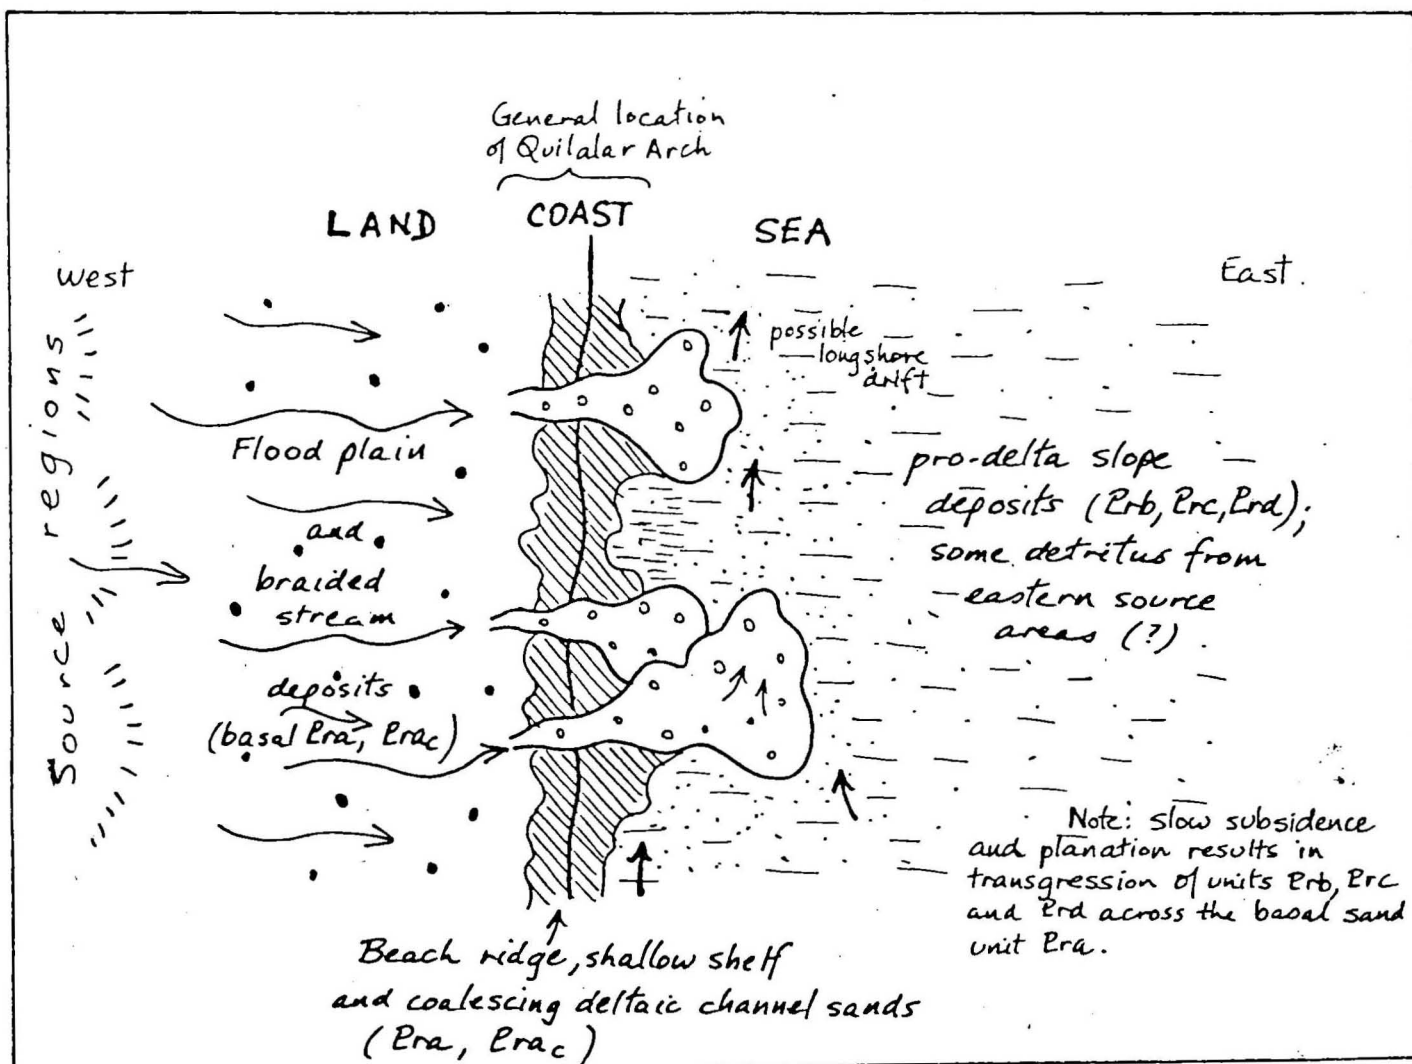 General location
of Quilalar Arch
LAND
COAST
SEA
West
East.
Source regions
possible
longshore
drift
Flood plain
and
braided
stream
deposits
(basal Pra, Prac)
pro-delta slope
deposits (Prb, Prc, Prd);
some detritus from
eastern source
areas (?).
Note: slow subsidence
and planation results in
transgression of units Prb, Prc
and Prd across the basal sand
unit Pra.
Beach ridge, shallow shelf
and coalescing deltaic channel sands
(Pra, Prac)